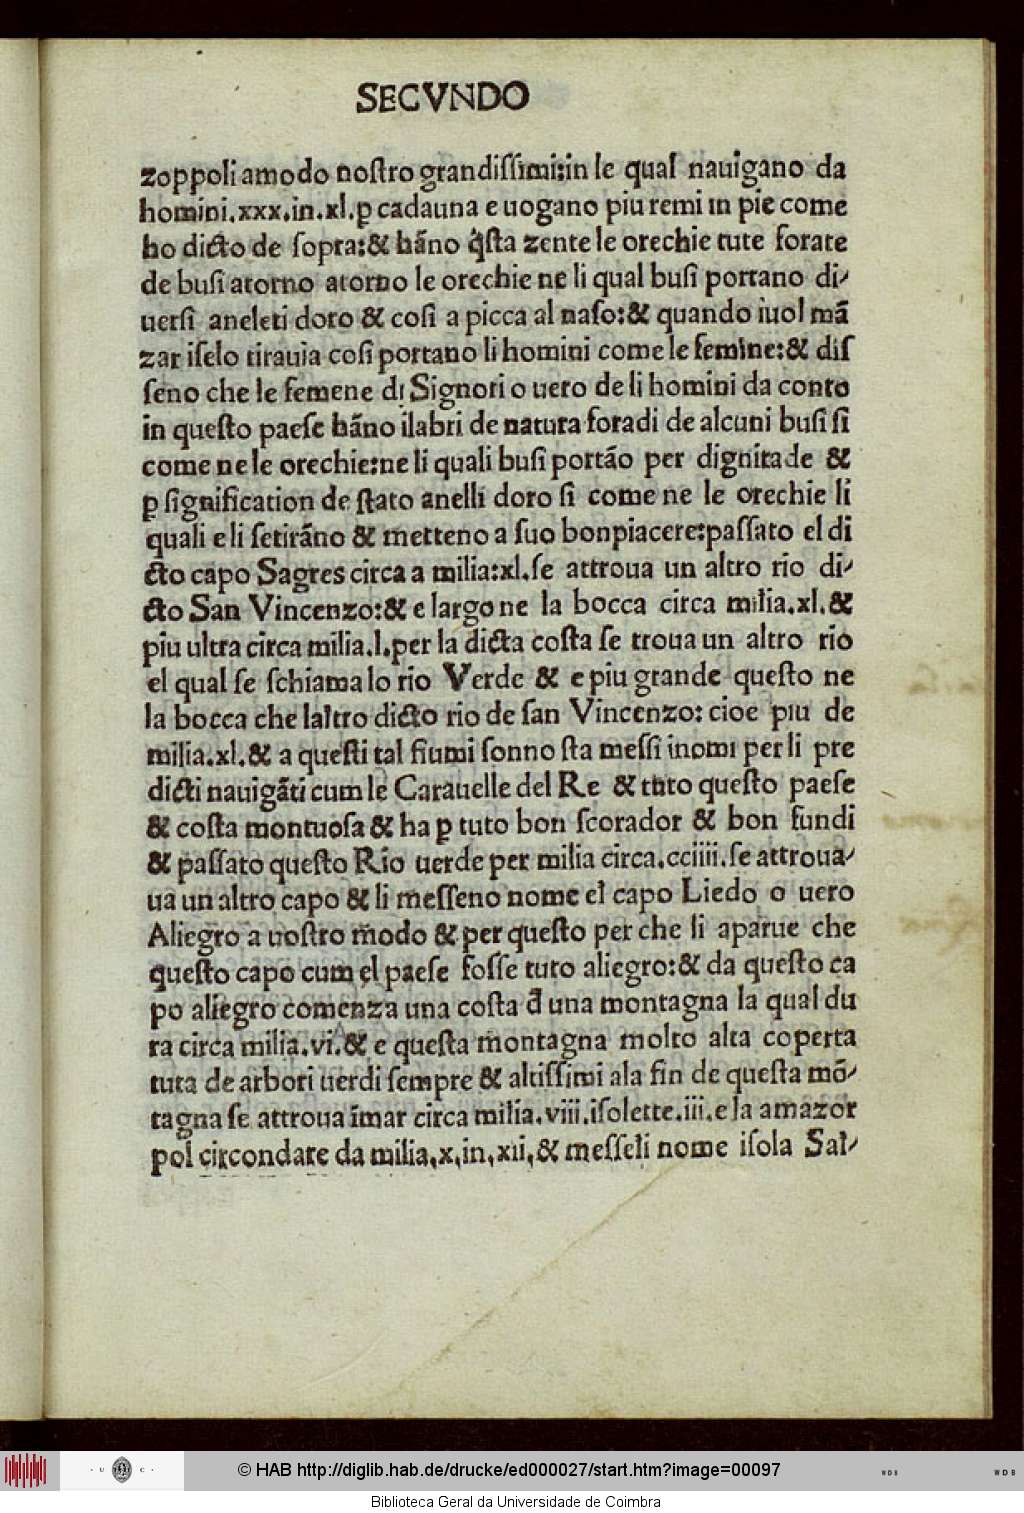 SECVNDO
zoppoli amodo nostro grandissimi:in le qual nauigano da
homini.xxx.in.xl.ꝑ cadauna e uogano piu remi in pie come
ho dicto de sopra:& hãno q̃sta zente le orechie tute forate
de busi atorno atorno le orechie ne li qual busi portano di-
uersi aneleti doro & cosi a picca al naso:& quando iuol mã
zar iselo tirauia cosi portano li homini come le femine:& dis
seno che le femene di Signori o uero de li homini da conto
in questo paese hãno ilabri de natura foradi de alcuni busi si
come ne le orechie:ne li quali busi portão per dignitade &
ꝑ signification de stato anelli doro si come ne le orechie li
quali e li setirãno & metteno a suo bonpiacere:passato el di
cto capo Sagres circa a milia:xl.se attroua un altro rio di-
cto San Vincenzo:& e largo ne la bocca circa milia.xl.&
piu ultra circa milia.l.per la dicta costa se troua un altro rio
el qual se schiama lo rio Verde & e piu grande questo ne
la bocca che laltro dicto rio de san Vincenzo: cioe piu de
milia.xl.& a questi tal fiumi sonno sta messi inomi per li pre
dicti nauigãti cum le Carauelle del Re & tuto questo paese
& costa montuosa & ha ꝑ tuto bon scorador & bon fundi
& passato questo Rio uerde per milia circa.cciiii.se attroua-
ua un altro capo & li messeno nome el capo Liedo o uero
Aliegro a uostro modo & per questo per che li aparue che
questo capo cum el paese fosse tuto aliegro:& da questo ca
po aliegro comenza una costa d̃ una montagna la qual du
ra circa milia.vi.& e questa montagna molto alta coperta
tuta de arbori uerdi sempre & altissimi ala fin de questa mõ-
tagna se attroua ĩmar circa milia.viii.isolette.iii.e la amazor
pol circondare da milia.x.in.xii,& messeli nome isola Sal-
© HAB http://diglib.hab.de/drucke/ed000027/start.htm?image=00097
WDB
WDB
· U C ·
Biblioteca Geral da Universidade de Coimbra